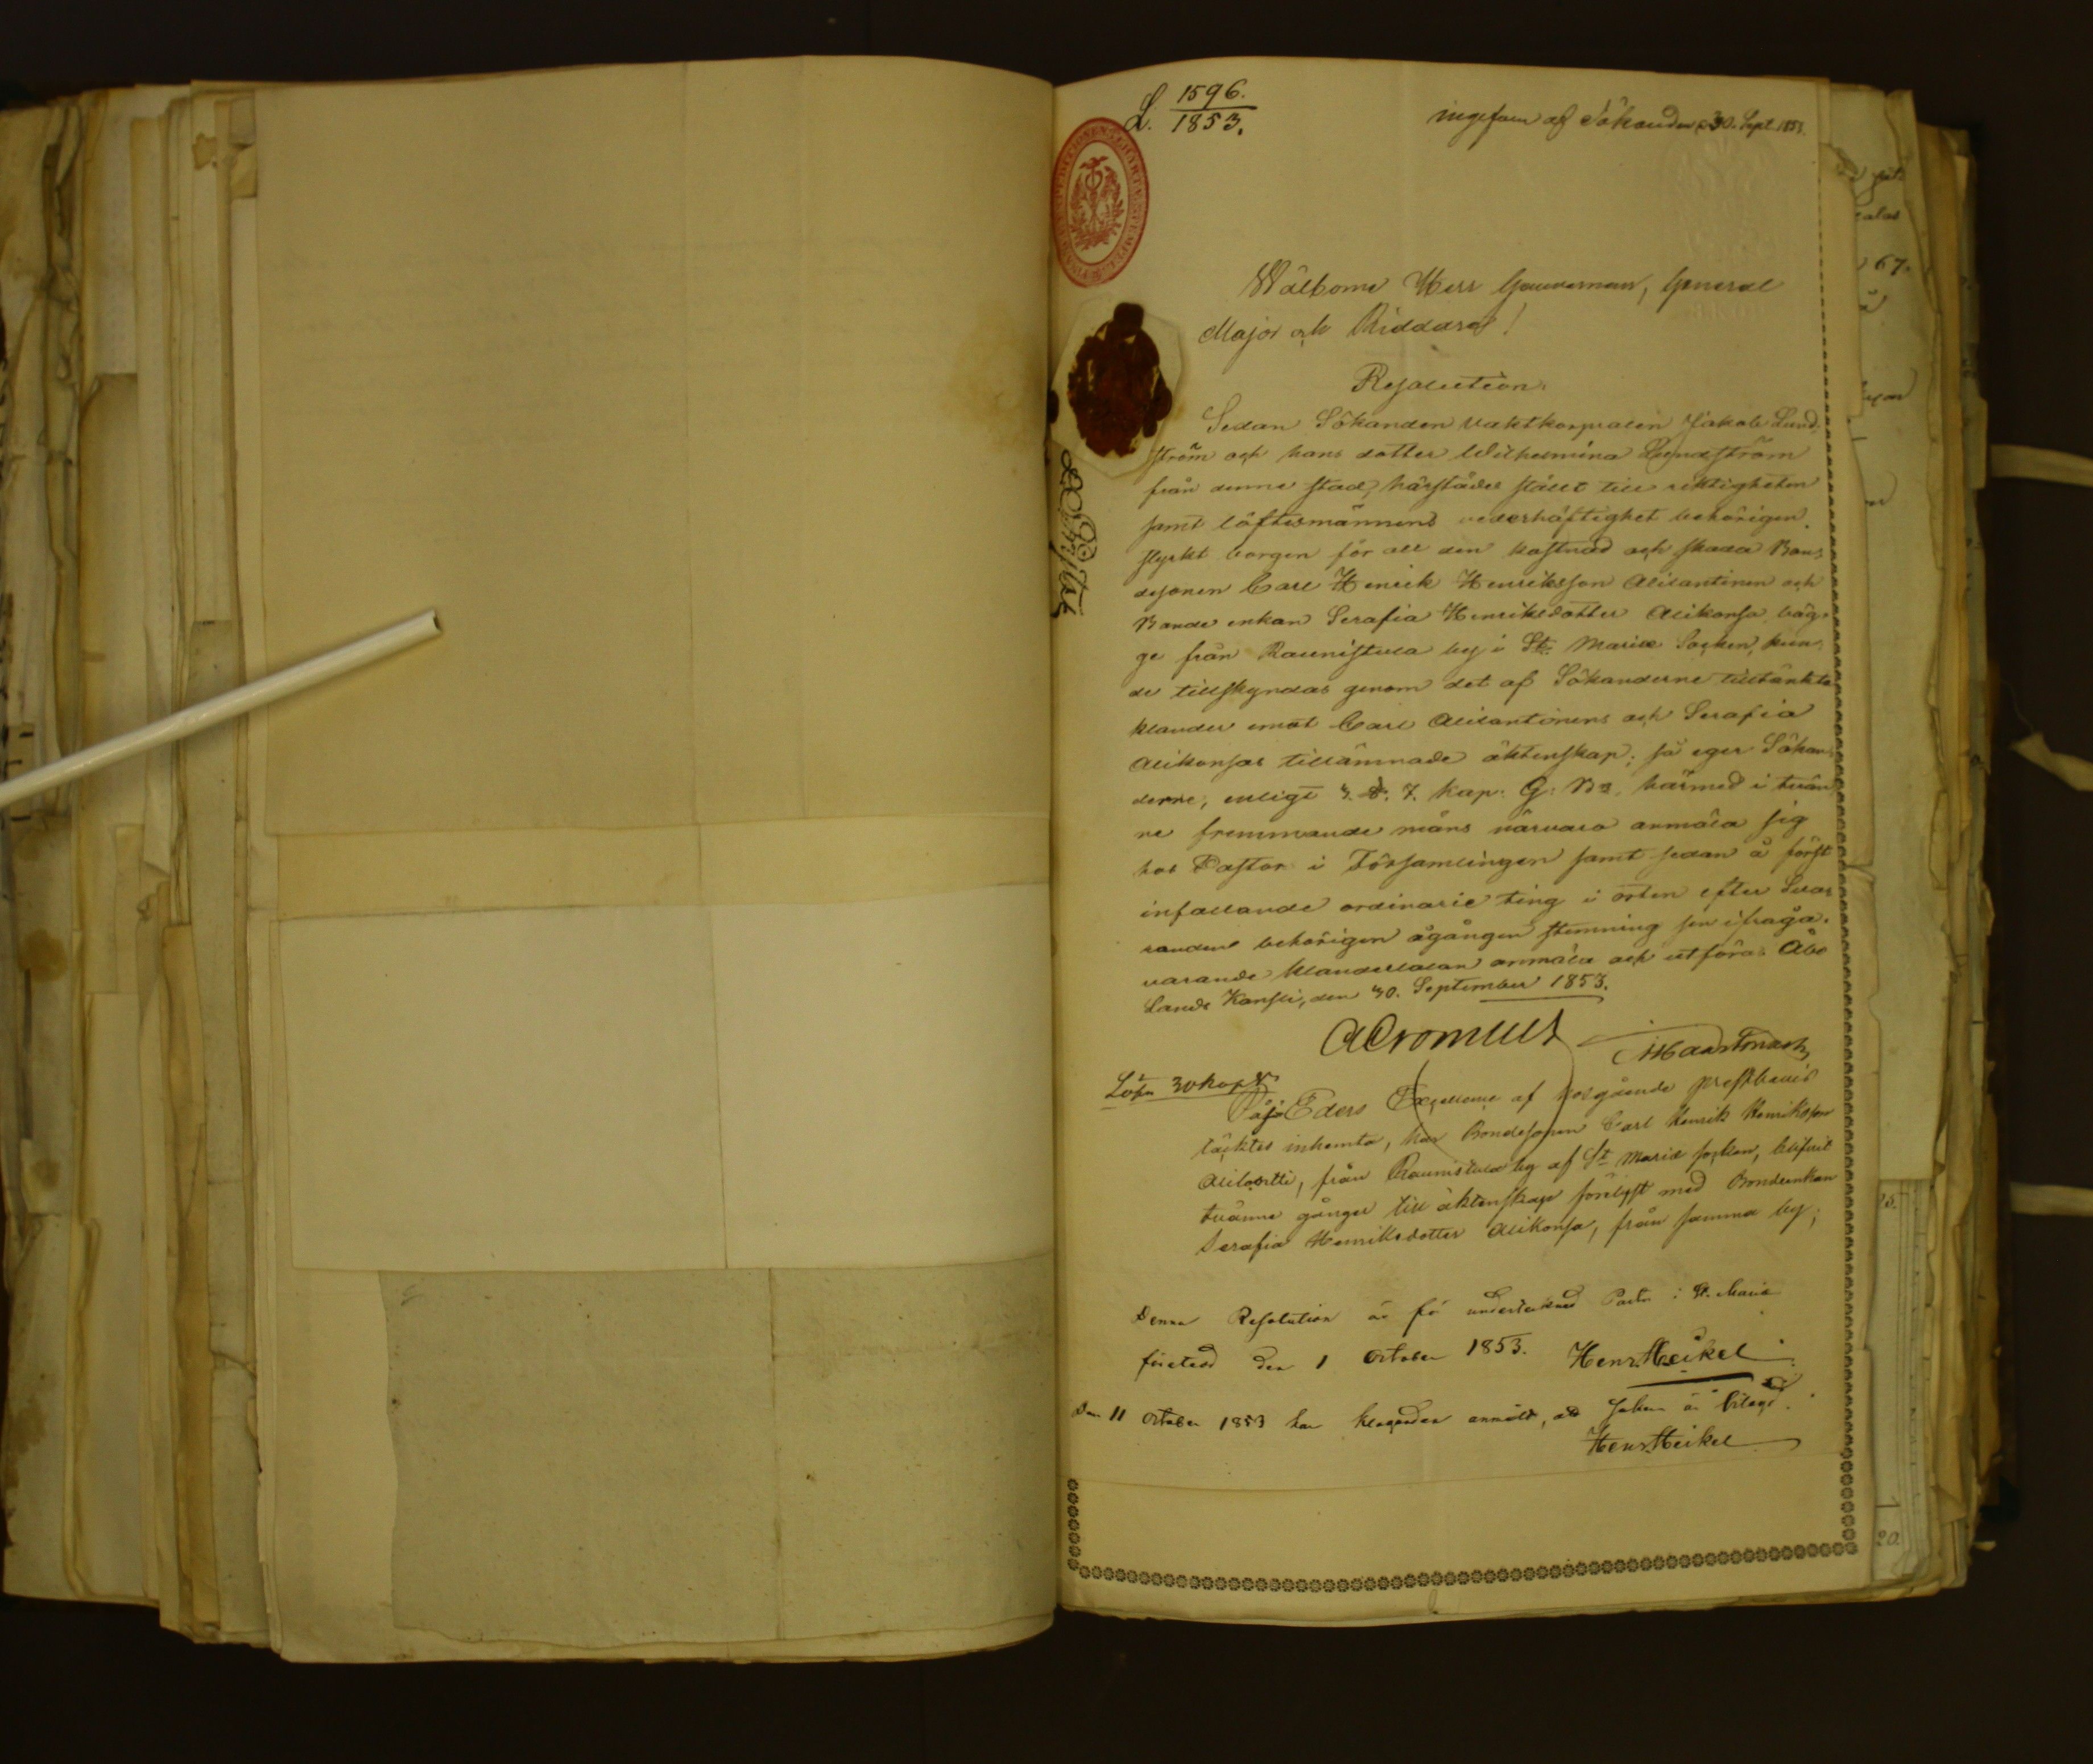 L. 1596.
1853.
ingifven af Sökanden d 30. Sept. 1853.
Wälborne Herr Gouverneur, General
Major och Riddare!
Resolution.
Sedan Sökanden Vaktkorpralen Jakob Lund-
ström och hans dotter Wilhelmina Lundström
från denne stad, härstädes stället till riktigheten
samt löftesmännens vederhäftighet behörigen
styrkt borgen för all den kostnad och skada Bon-
desonen Carl Henrik Henriksson Alilantinen och
Bonde enkan Serafia Henriksdotter Alikonsa, bäg-
ge från Raunistula by i St. Mariæ Socken, kun-
de tillskyndas genom det af Sökanderne tilltänkta
klander emot Carl Alilantinens och Serafia
Alikonsas tillämnade äktenskap; så eger Sökan-
derne, enligt 3. §. 7. kap: G: B:, härmed i tvän-
ne fremmande mäns närvaro anmäla sig
hos Pastor i Församlingen samt sedan å först
infallande ordinarie ting i orten efter Sva-
randen behörigen ågången stemning sin ifråga-
varande klandertalan anmäla och utföra. Åbo
Lands Kansli, den 30. September 1853.
ACronstedt
Lösn 30 kop Sr
Eders af prestbevis
täcktes inhemta, har Bondesonen Carl Henrik Henriksson
från Raunistula by af St Mariæ socken, blifvit
tvänne gånger till äktenskap förelyst med Bondeenkan
Serafia Henriksdotter Alikonsa, från samma by;
Denna Resolution är för undertecknad Pastor i St. Mariæ
företedd den 1 October 1853. Henr. Heikel
Den 11 October 1853 har klaganden anmält, att saken är bilagd.
Henr. Heikel
67.
20.